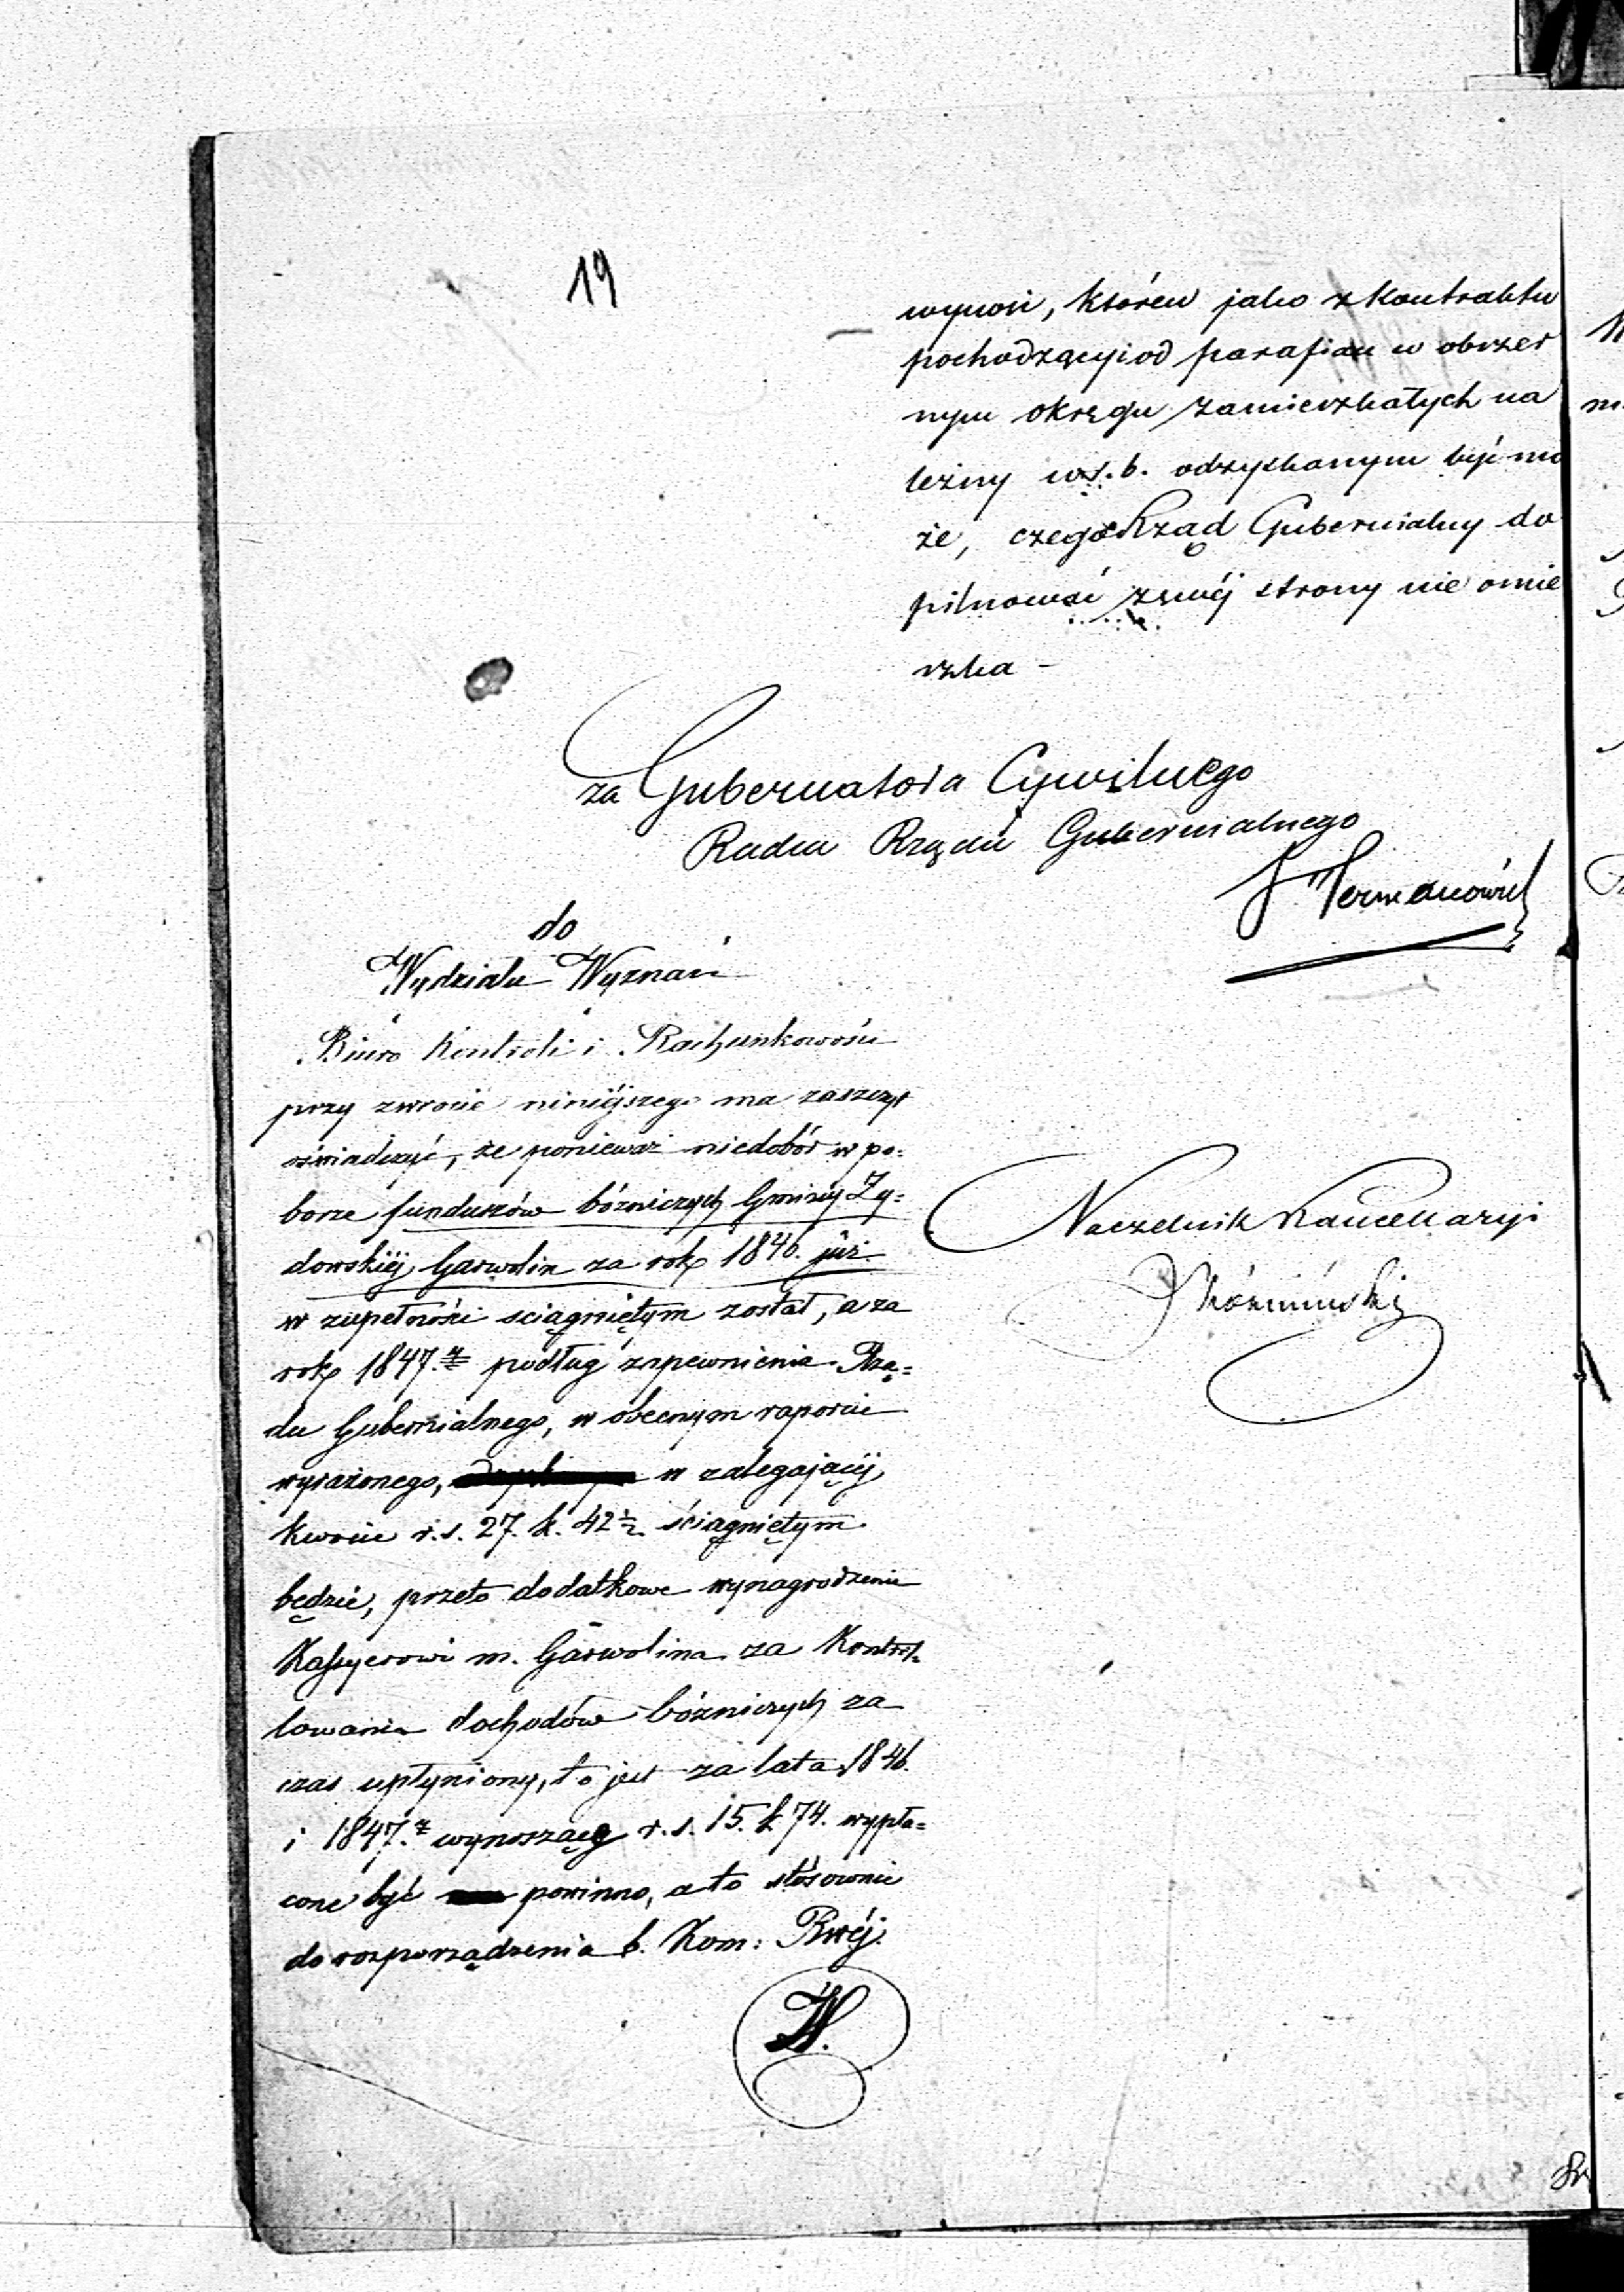 19
wynosi, któren jako z kontraktu
pochodzącyi od parafian w obszer
nym okręgu zamieszkałych na
leżny w r. b. odzyskanym być mo
że, czego Rząd Gubernialny do
pilnować z swéj strony nie omie
szka –
za Gubernatora Cywilnego
Radca Rządu Gubernialnego
Hermanowicz
Naczelnik Kancellaryi
do
Wydziału Wyznań
Biuro Kontroli i Rachunkowości
przy zwrocie niniéjszego ma zaszczyt
oświadczyć, że ponieważ niedobór w po=
borze funduszów bóżniczych Gminy Ży=
dowskiéj Garwolin za rok 1846. już
w zupełności sciągniętym został, a za
rok 1847. r podług zapewnienia Rzą=
du Gubernialnego, w obecnym raporcie
wyrażonego, w zalegającéj
kwocie r. s. 27. k. 42½ ściągniętym
będzie, przeto dodatkowe wynagrodzenie
Kassyerowi m. Garwolina za Kontrol=
lowanie dochodów bóżniczych za
czas upłyniony, to jest za lata 1846.
i 1847. r wynoszące r. s. 15. k 74. wypła=
cone być powinno, a to stósownie
do rozporządzenia b. Kom: Rwéj.
W.